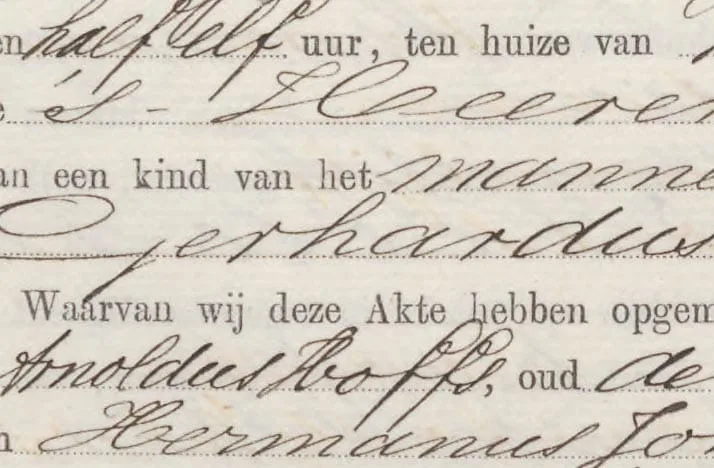 en half elf uur, ten huize van
e 's-Heeren
an een kind van het manne
Gerhardus
Waarvan wij deze Akte hebben opgem
Arnoldus Hoffs, oud de
n Hermanus Jo